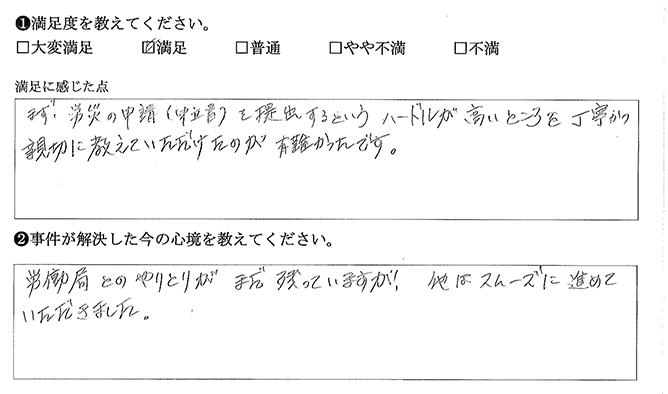 ❶満足度を教えてください。
□大変満足 ☑満足 □普通 □やや不満 □不満
満足に感じた点
まず、労災の申請(申立書)を提出するという ハードルが 高いところを 丁寧かつ
親切に教えていただけたのが 有難かったです。
❷事件が解決した今の心境を教えてください。
労働局 とのやりとりが まだ 残っていますが、他は スムーズに 進めて
いただきました。